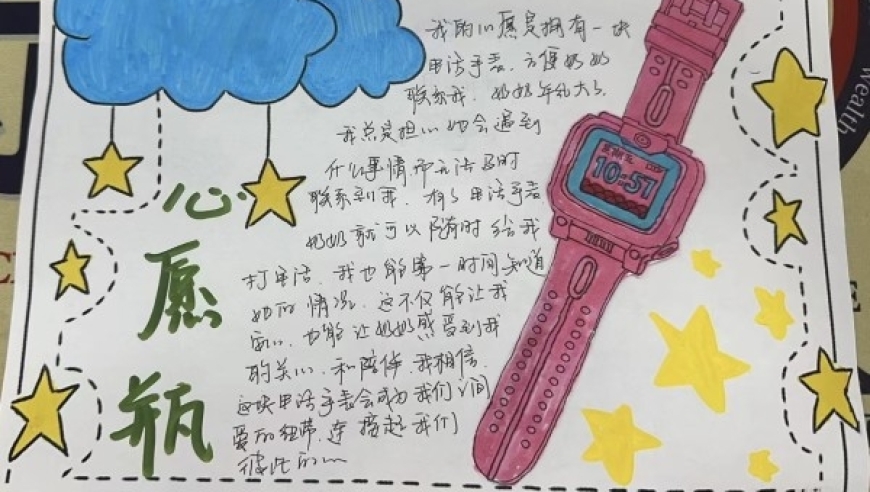 心愿瓶
我的心愿是拥有一块
电话手表，方便奶奶
联系我，奶奶年纪大了，
我总是担心她会遇到
什么事情却无法及时
联系到我，有了电话手表
奶奶就可以随时给我
打电话，我也能第一时间知道
她的情况，这不仅能让我
安心，也能让奶奶感受到我
的关心，和陪伴，我相信，
这块电话手表会成为我们之间
爱的纽带，连接起我们
彼此的心
星期五
10:57
wealth